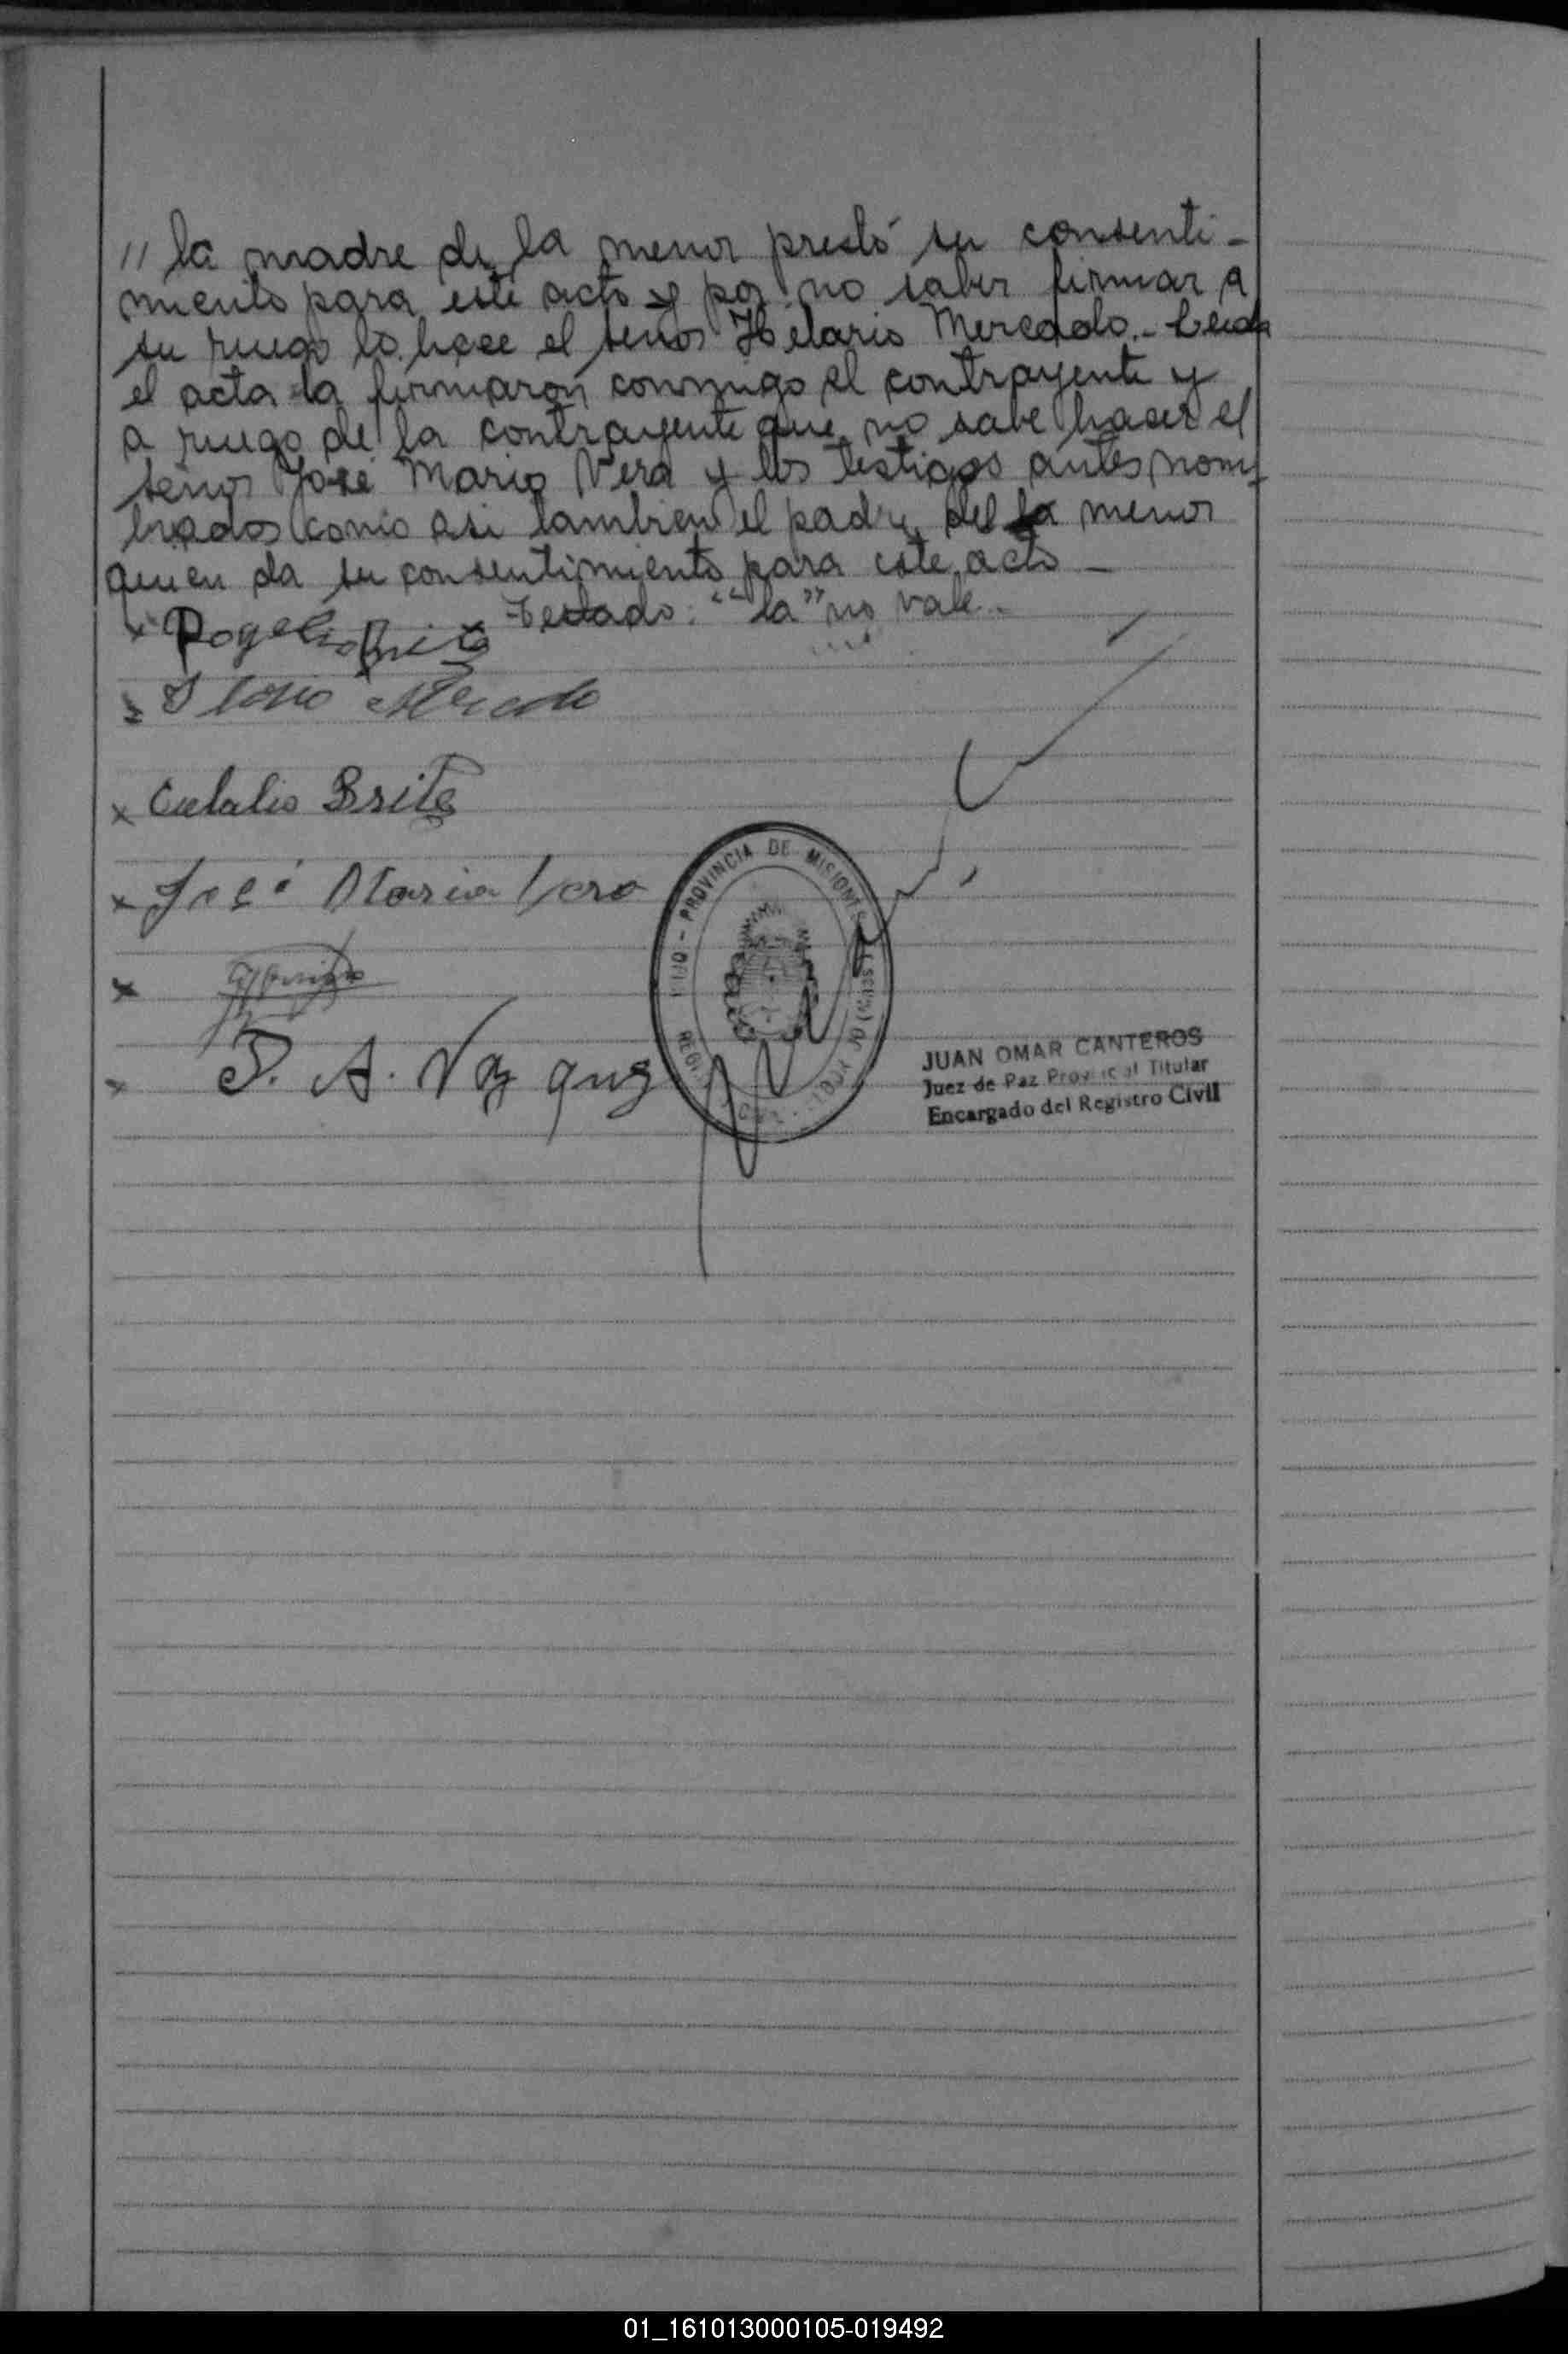 // la madre de la menor prestó su consenti-
miento para este acto y por no saber firmar a
su ruego lo hace el señor Hilario Mercado.- Leida
el acta la firmaron conmigo el contrayente y
a ruego de la contrayente que no sabe hacer el
señor José Mario Vera y los testigos antes nom-
brados como asi tambien el padre del la menor
quien da su consentimiento para este acto -
Testado: "la" no vale.-
x Rogelio Brite
x Ilario Mercado
x Eulalio Brite
x José Maria Vera
x
x J. A. Vazquez
PROVINCIA DE MISIONES
JUAN OMAR CANTEROS
Juez de Paz Provincial Titular
Encargado del Registro Civil
01_161013000105-019492